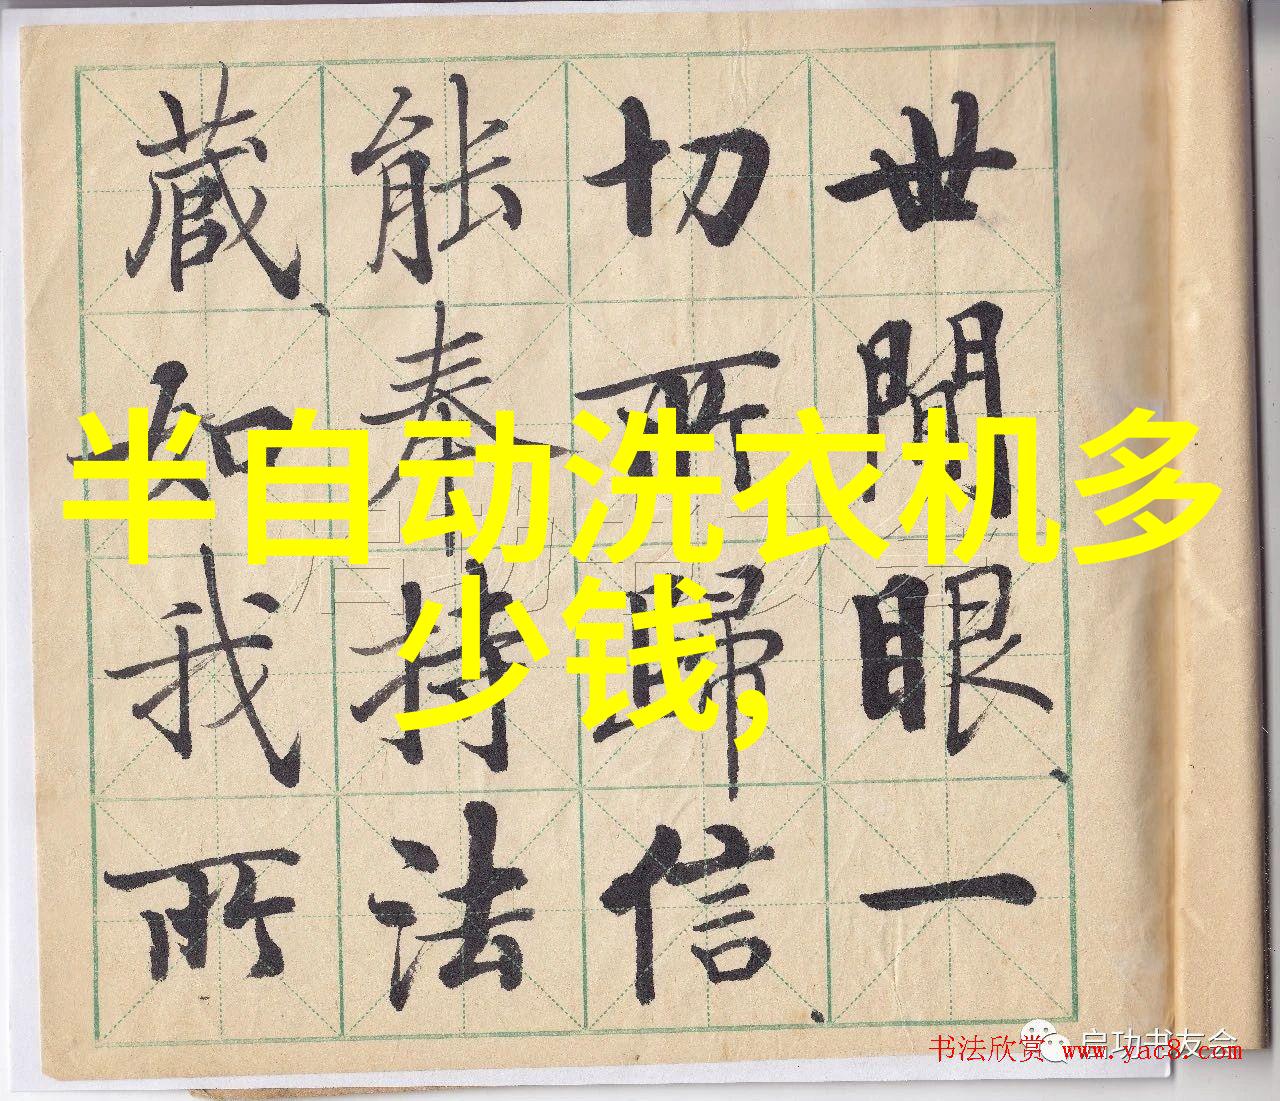 世間眼一
切所歸信
能奉持法
藏如我所
半自动洗衣机多
少钱,
启功书友会
书法欣赏 www.yac8.com
启功书友会